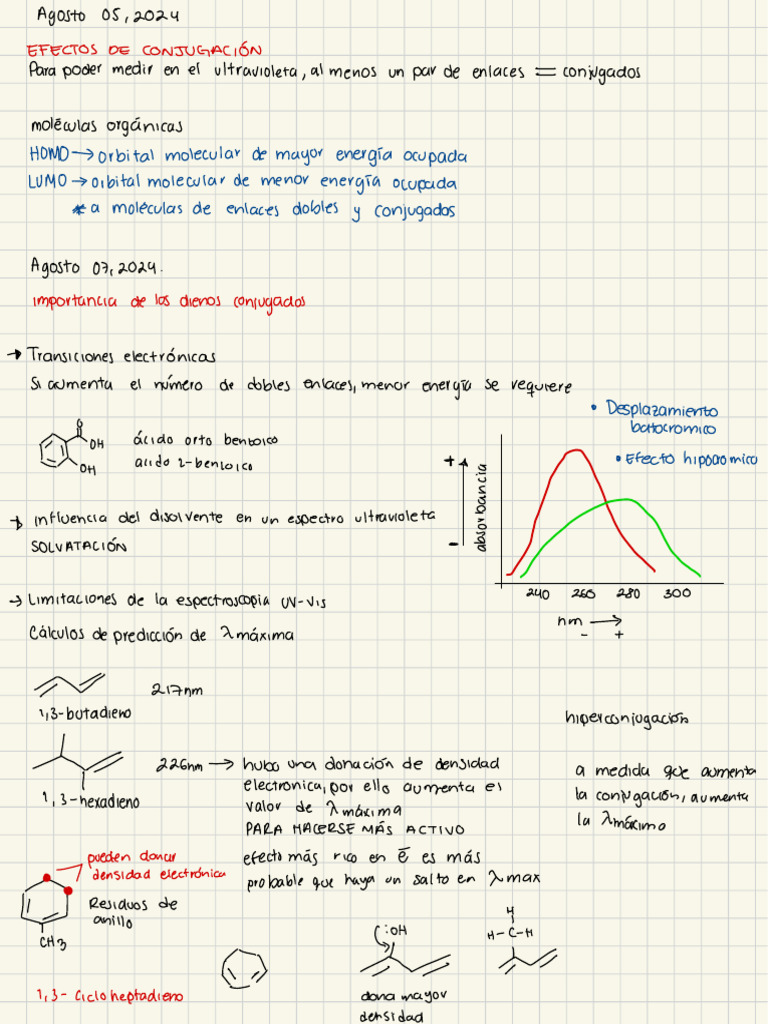 Agosto 05, 2024
EFECTOS DE CONJUGACIÓN
Para poder medir en el ultravioleta, al menos un par de enlaces = conjugados
moléculas orgánicas
HOMO → orbital molecular de mayor energía ocupada
LUMO → orbital molecular de menor energía ocupada
* a moléculas de enlaces dobles y conjugados
Agosto 07, 2024.
importancia de los dienos conjugados
→ Transiciones electrónicas
Si aumenta el número de dobles enlaces, menor energía se requiere
O
OH
OH
ácido orto benzoico
acido 2-benzoico
• Desplazamiento
batocromico
• Efecto hipocromico
+
-
absorbancia
240 260 280 300
nm →
- +
→ influencia del disolvente en un espectro ultravioleta
SOLVATACIÓN
→ Limitaciones de la espectroscopia UV-Vis
Cálculos de predicción de λ máxima
217nm
1,3-butadieno
226nm → hubo una donación de densidad
electronica, por ello aumenta el
valor de λ máxima
PARA HACERSE MÁS ACTIVO
1,3-hexadieno
hiperconjugación
a medida que aumenta
la conjugación, aumenta
la λ máxima
efecto más rico en e̅ es más
probable que haya un salto en λ max
pueden donar
densidad electrónica
Residuos de
anillo
CH3
1,3- Ciclo heptadieno
:OH
dona mayor
densidad
H
H-C-H